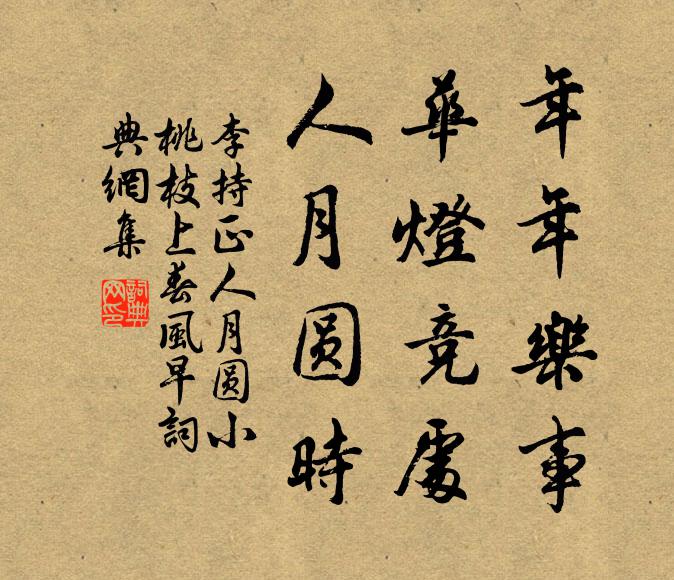 年年樂事
華燈競處
人月圓時
李持正人月圓小
桃枝上春風早詞
典網集
詞典網印